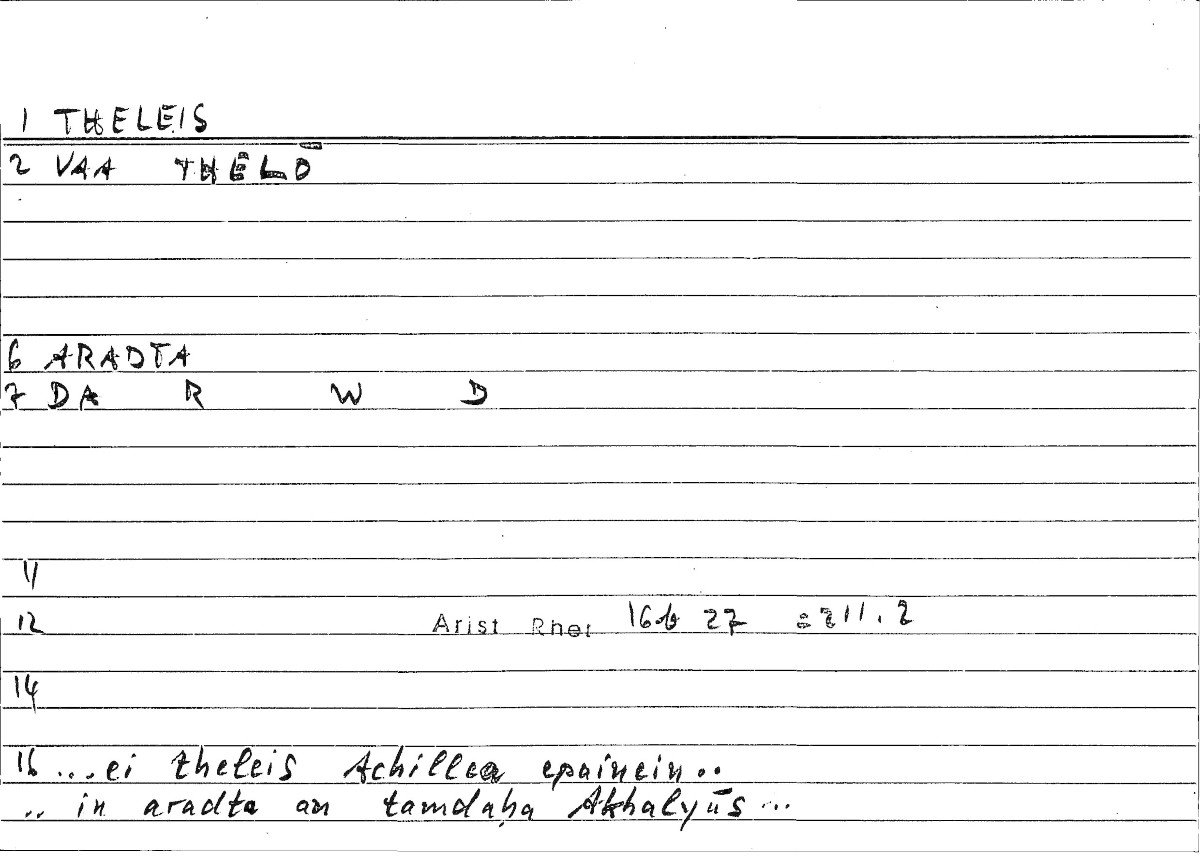 1 THELEIS
2 VAA THĒLŌ
6 ARADTA
7 DA R W D
11
12 Arist Rhet 16b 27 = 211.2
14
16 ... ei theleis Achillea epainein ..
.. in aradta an tamdaḥa Akhalyūs ...